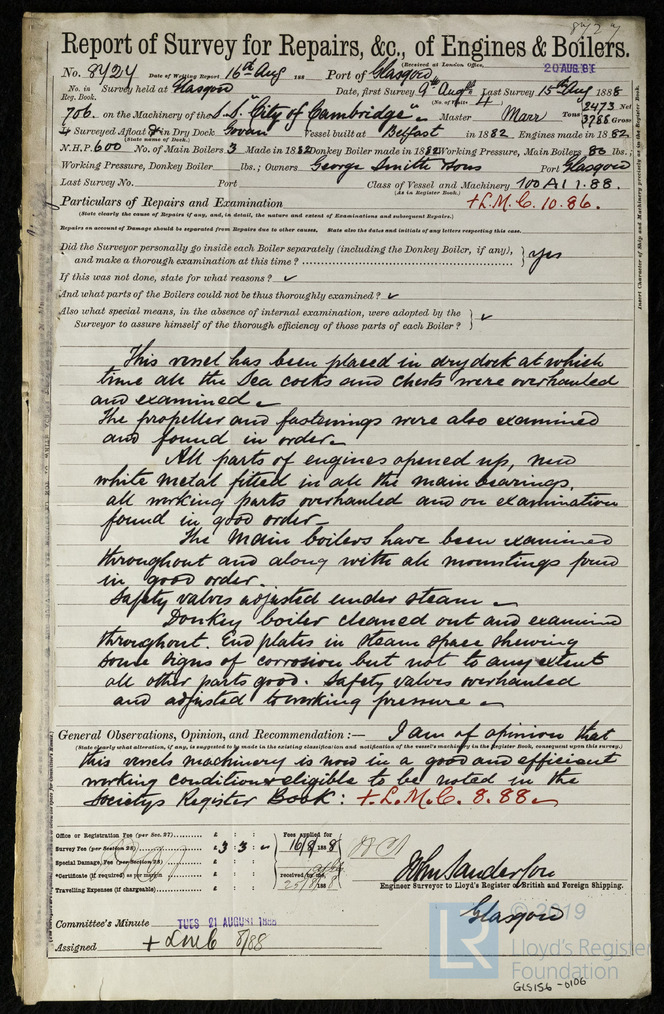 8424
Report of Survey for Repairs, &c., of Engines & Boilers.
(Received at London Office,
20 AUG. 88
No. 8424 Date of Writing Report 16th Aug 188 Port of Glasgow
No. in Reg. Book. Survey held at Glasgow Date, first Survey 9th Augt Last Survey 15th Aug 1888
(No. of Visits 4)
706. on the Machinery of the S.S. "City of Cambridge" Master Marr Tons 2473 Net 3788 Gross
Surveyed Afloat & in Dry Dock Govan Vessel built at Belfast in 1882 Engines made in 1882
(State name of Dock.)
N.H.P. 600 No. of Main Boilers 3 Made in 1882 Donkey Boiler made in 1882 Working Pressure, Main Boilers 80 lbs.;
Working Pressure, Donkey Boiler lbs.; Owners George Smith & Sons Port Glasgow
Last Survey No. Port Class of Vessel and Machinery 100 A1 1.88.
(As in Register Book.)
Particulars of Repairs and Examination + L.M.C. 10.86.
(State clearly the cause of Repairs if any, and, in detail, the nature and extent of Examinations and subsequent Repairs.)
Repairs on account of Damage should be separated from Repairs due to other causes. State also the dates and initials of any letters respecting this case.
Did the Surveyor personally go inside each Boiler separately (including the Donkey Boiler, if any),
and make a thorough examination at this time? yes
If this was not done, state for what reasons? ✓
And what parts of the Boilers could not be thus thoroughly examined? ✓
Also what special means, in the absence of internal examination, were adopted by the
Surveyor to assure himself of the thorough efficiency of those parts of each Boiler? ✓
Insert Character of Ship and Machinery precisely as in the
This vessel has been placed in dry dock at which
time all the Sea cocks and chests were overhauled
and examined
The propeller and fastenings were also examined
and found in order
All parts of engines opened up, new
white metal fitted in all the main bearings,
all working parts overhauled and on examination
found in good order
The Main boilers have been examined
throughout and along with all mountings found
in good order.
Safety valves adjusted under steam
Donkey boiler cleaned out and examined
throughout. End plates in steam space shewing
some signs of corrosion but not to any extent
all other parts good. Safety valves overhauled
and adjusted to working pressure
General Observations, Opinion, and Recommendation:— I am of opinion that
(State clearly what alteration, if any, is suggested to be made in the existing classification and notification of the vessel's machinery in the Register Book, consequent upon this survey.)
this vessels machinery is now in a good and efficient
working condition & eligible to be noted in the
Societys Register Book: + L.M.C. 8.88
Office or Registration Fee (per Sec. 27) £ : :
Survey Fee (per Section 28) £ 3 : 3 :
Special Damage Fee (per Section 28) £ : :
*Certificate (if required) as per margin £ : :
Travelling Expenses (if chargeable) £ : :
Fees applied for
16/8/1888
received by me,
25/8/1888
John Sanderson
Engineer Surveyor to Lloyd's Register of British and Foreign Shipping.
Glasgow
Committee's Minute TUES 21 AUGUST 1888
Assigned + LMC 8/88
© 2019
LR
Lloyd's Register
Foundation
GLS156-0106